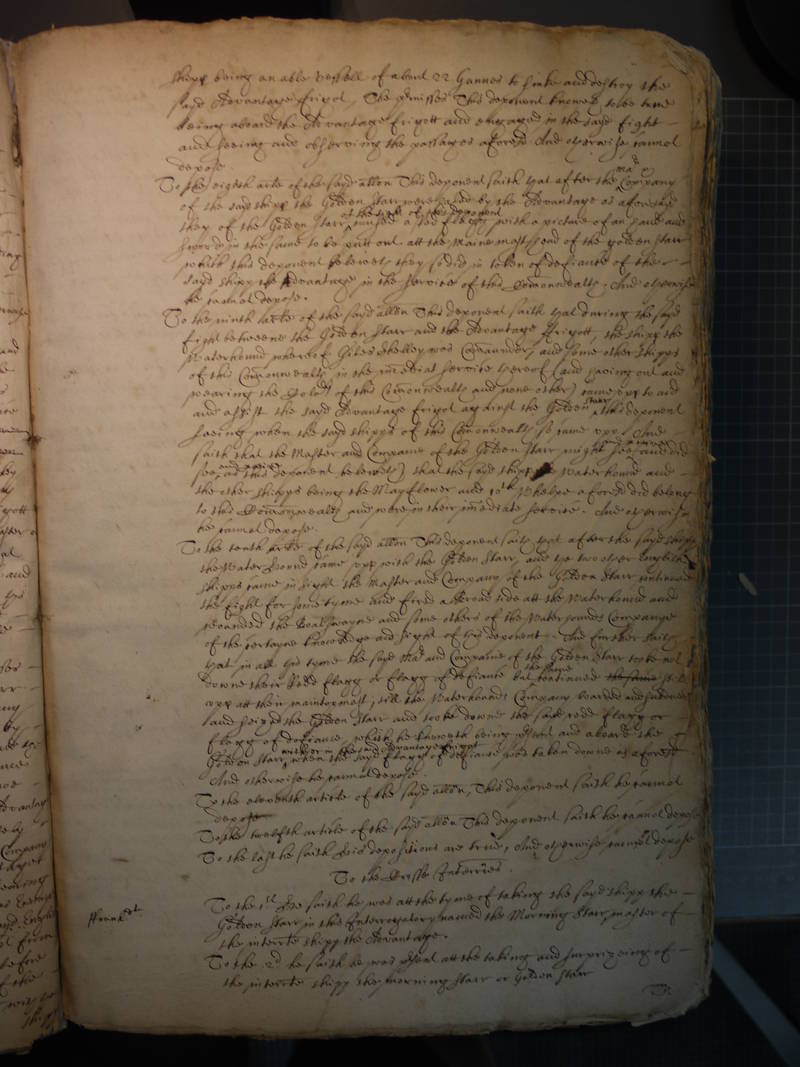 shipp being an able vessell of about 22 Gunnes to sinke and destroy the
sayd Advantage frigot, The premisses this deponent knoweth to be true
being aboard the Advantage frigott and engaged in the sayd fight
and seeing and observing the passages aforesd And otherwise cannot
depose
To the eighth arte of the sayd allon This deponent saith that after the Mar & Company
of the sayd shipp the Golden Starr were hailed by the Advantage as aforesaid
they of the Golden Starr of this deponent caused a redd flagg with a picture of an hand and
sword in the same to be putt out att the Maine mast head of the golden starr
which this deponent beleeveth they so did in token of defiance of the
sayd shipp the Advantage in the service of this Comonwealth, And otherwise
he cannot depose.
To the ninth arte of the sayd allon This deponent saith that during the sayd
fight betweene the Golden Starr and the Advantage frigott, the shipp the
Waterhound whereof Giles Shelley was Comaunder, and some other shipps
of this Comonwealth in the imediat service thereof (and having out and
wearing the Colors of this Comonwealth and none other) came upp to aid
and assist the sayd Advantage frigot against the Golden Starr, this deponent
seeing when the sayd shipps of this Comonwealth so came upp, And
saith that the Master and Companie of the Golden Starr might see and did
see as this deponent beleeveth) that the sayd shipp Waterhound and
the other shipps being the Mayflower and 10th Whelpe aforesd did belong
to this Comonwealth and were in their imediate service. And otherwise
he cannot depose.
To the tenth arte of the sayd allon This deponent saith that after the sayd shipp
the Water hound came upp with the Golden Starr, and the two other English
shipps came in sight the Master and Company of the Golden Starr continued
the fight for some tyme and fired a broad side att the Waterhound and
wounded the Boatswayne and some others of the Waterhounds Companye
of the certayne knowledge and sight of this deponent. And further saith
that in all this tyme the sayd Mar and Companie of the Golden Starr tooke not
downe their Redd flagg or flagg of defiance but continued the same
upp att their maintopmast, till the Waterhounds Company boarded and entered
and seized the Golden Starr and tooke downe the sayd redd flagg or
flagg of defiance, which he knoweth being present and aboard the
Golden Starr when the sayd flagg of defiance was taken downe as aforesd
And otherwise he cannot depose.
To the eleventh article of the sayd allon, This deponent saith he cannot
depose
To the twelfth article of the sayd allon This deponent saith he cannot depose
To the last he saith his depositions are true, And otherwise cannot depose
To the Crosse Interries.
To the 1st hee saith he was att the tyme of taking the sayd shipp the
Golden Starr in this Interrogatory named the Morning Starr, master of
the interrte shipp the Advantage.
To the 2d he saith he was present att the taking and surprizeing of
the interrte shipp the morning Starr or Golden Starr